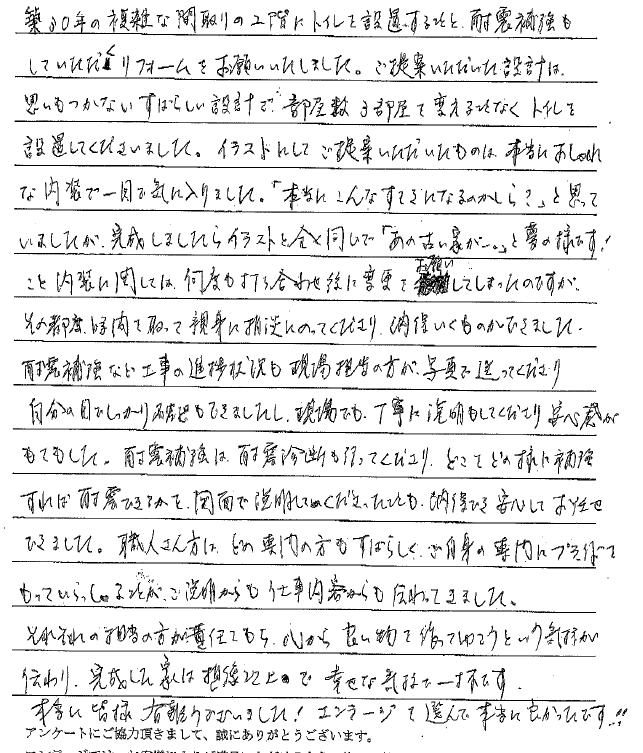 築30年の複雑な間取りの2階にトイレを設置することと、耐震補強も
していただくリフォームをお願いいたしました。ご提案いただいた設計は、
思いもつかないすばらしい設計で、部屋数3部屋を変えることなくトイレを
設置してくださいました。イラストにしてご提案いただいたものは、本当におしゃれ
な内装で一目で気に入りました。「本当にこんなすてきになるのかしら?」と思って
いましたが、完成しましたらイラストと全く同じで「あの古い家が…。」と夢の様です!
こと内装に関しては、何度も打ち合わせ後に変更をお願いしてしまったのですが、
その都度、時間を取って親身に相談にのってくださり、納得いくものができました。
耐震補強など工事の進捗状況も現場担当の方が、写真で送ってくださり
自分の目でしっかり確認もできましたし、現場でも、丁寧に説明もしてくださり安心感が
もてました。耐震補強は、耐震診断も行ってくださり、どこをどの様に補強
すれば耐震できるかを、図面で説明してくださったことも、納得でき安心してお任せ
できました。職人さん方は、どの専門の方もすばらしく、ご自身の専門にプライドを
もっていらっしゃることが、ご説明からも仕事内容からも伝わってきました。
それぞれの担当の方が責任をもち、心から良い物を作ってゆこうという気持が
伝わり、完成した家は想像以上で幸せな気持で一杯です。
本当に皆様有難うございました!エンラージを選んで本当に良かったです!!
アンケートにご協力頂きまして、誠にありがとうございます。